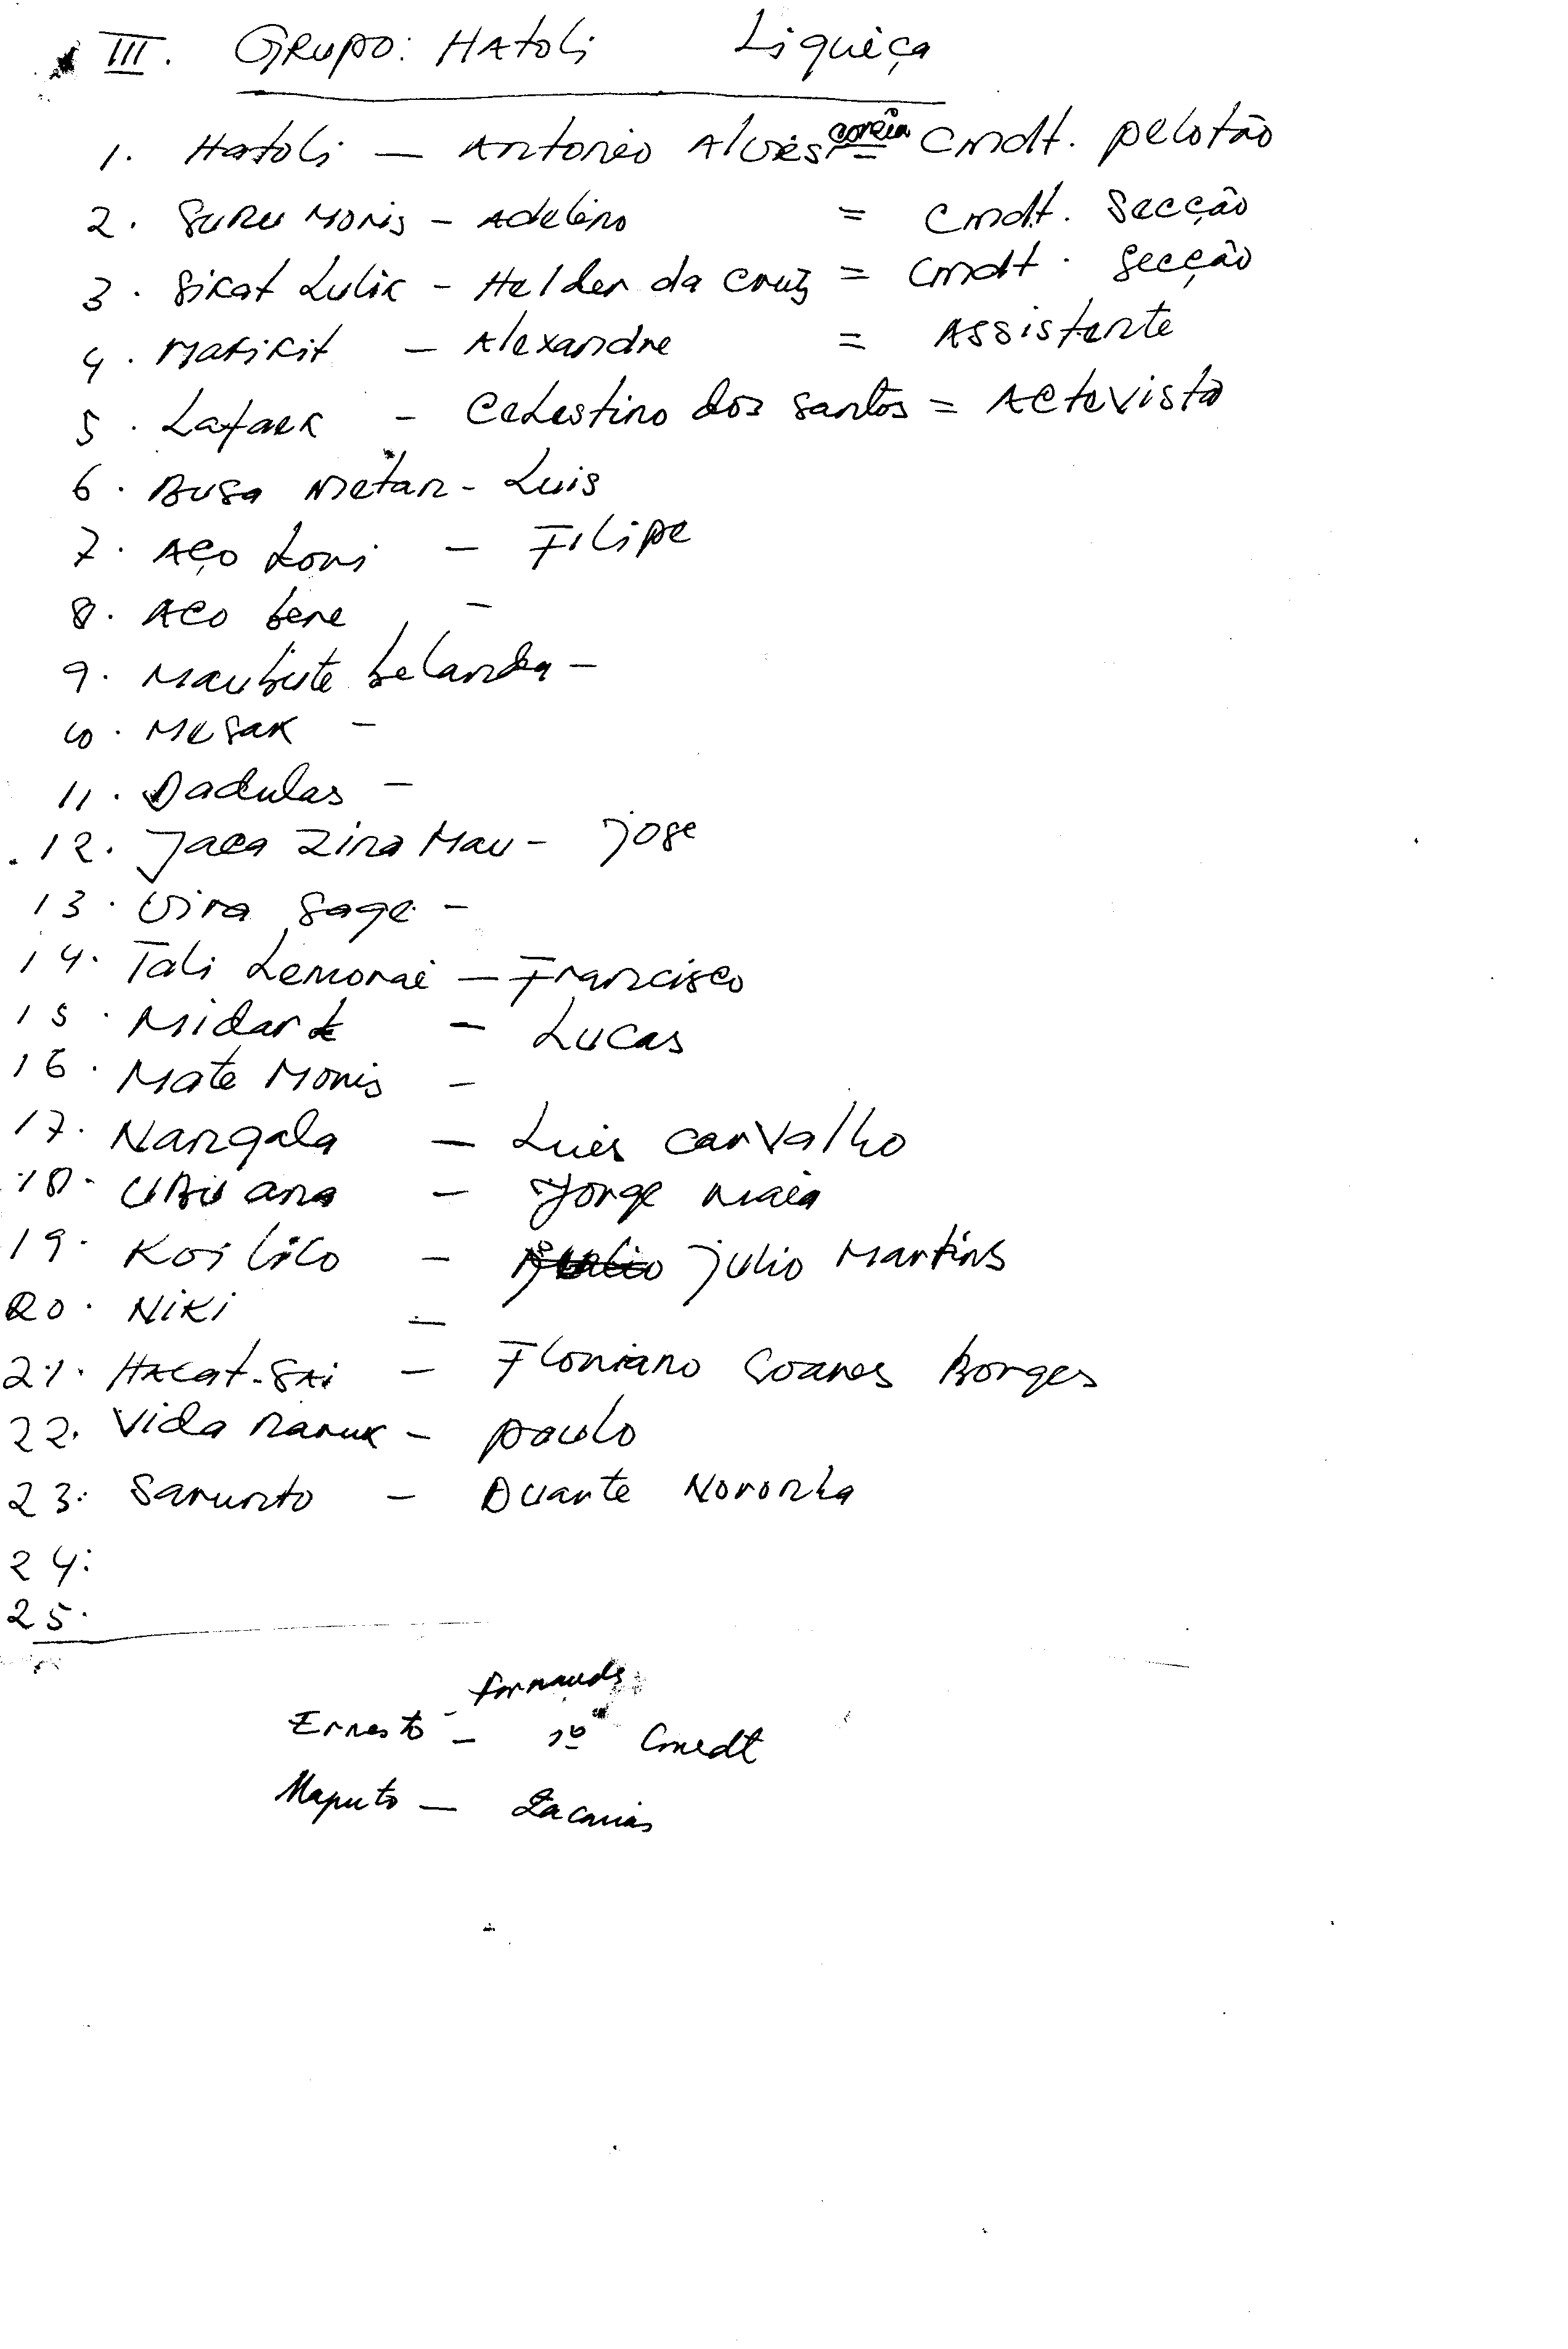 III. Grupo: Hatoli Liquiça
1. Hatoli — Antonio Alves corêia = Cmdt. pelotão
2. Suru Moris - Adelino = Cmdt. Secção
3. Sikat Lulik - Helder da Cruz = Cmdt. Secção
4. Makikit - Alexandre = Assistente
5. Lafaek - Celestino dos Santos = Actevista
6. Busa Metan - Luis
7. Aço Loni - Filipe
8. Aco bere -
9. Maubute belanda -
10. Mesak -
11. Dadulas -
12. Jaca Zina Mau - jose
13. Vira Sage -
14. Tali Lemorai — Francisco
15. Midar - Lucas
16. Mate Moris -
17. Nangala — Luis Carvalho
18. Ubu ana - Jorge Maia
19. Koi lico - julio Martins
20. Niki -
21. Hacat-Sai - Floriano Soares Borges
22. Vida Naruk - paulo
23. Sarunto - Duarte Noronha
24.
25.
Ernesto Fernands — 1º Cmdt
Maputo — Zacarias